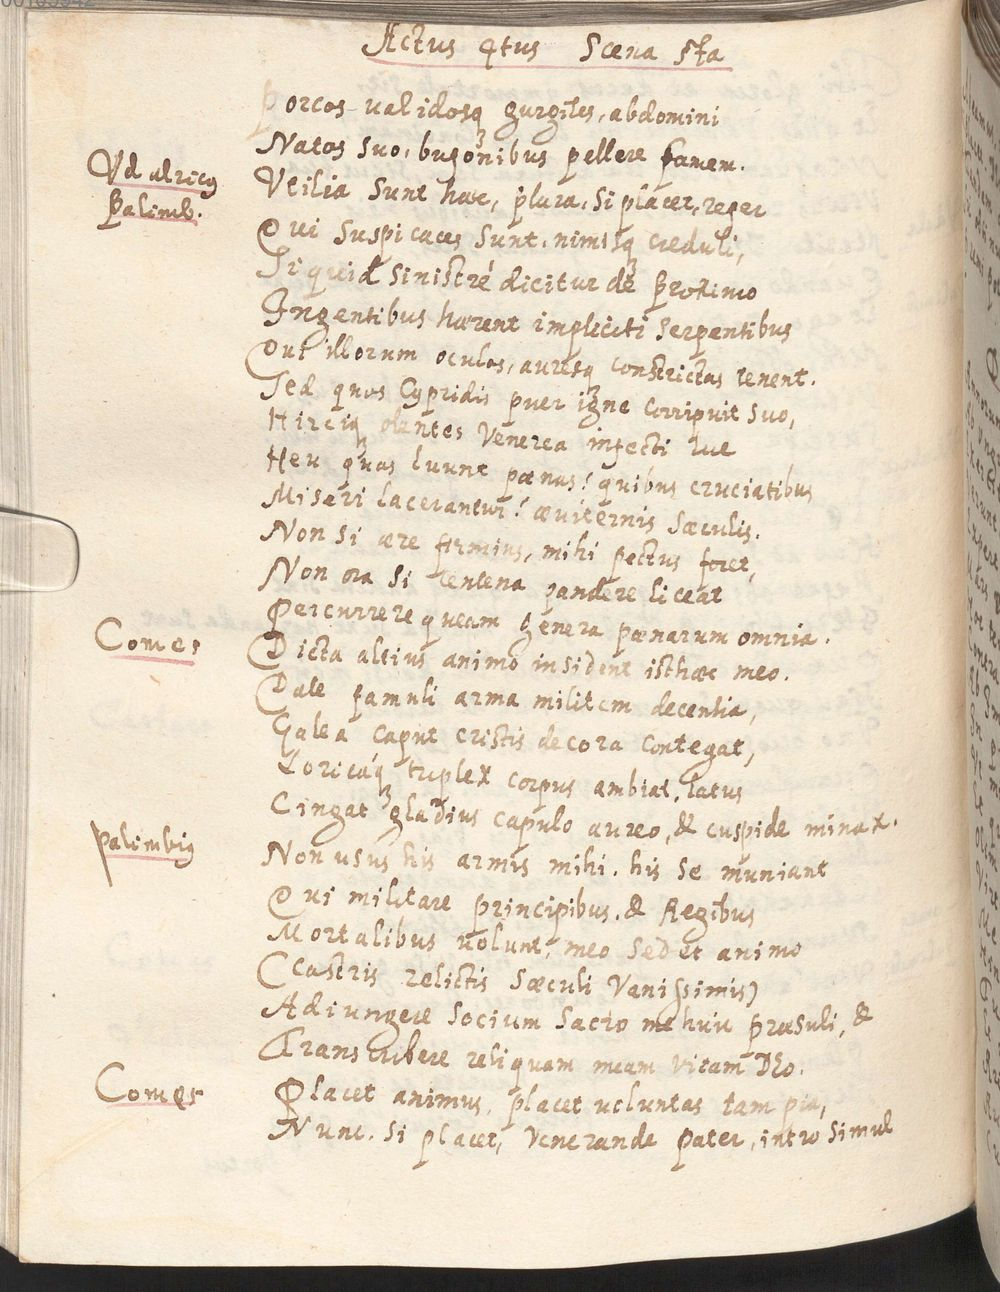 Actus 4tus Scena 5ta
Porcos validosq gurgites, abdomini
Natos suo, bufonibus pellere famem.
Udalricus
Utilia sunt haec, plura, si placet, refer
Palimb.
Qui suspicaces sunt, nimisq creduli,
Si quid sinistrè dicitur de Proximo
Ingentibus haerent impliciti serpentibus
Qui illorum oculos, auresq constrictas tenent.
Sed quos Cypridis puer igne corripuit suo,
Hirciq olentes Venerea infecti lue
Heu quas luunt poenas! quibus cruciatibus
Miseri lacerantur! aeviternis saeculis.
Non si aere firmius, mihi pectus foret,
Non ora si centena pandere liceat
Percurrere queam genera poenarum omnia.
Comes
Dicta altius animo insident isthaec meo.
Date famuli arma militem decentia,
Galea caput cristis decora contegat,
Loricáq triplex corpus ambiat, latus
Cingat gladius capulo aureo, & cuspide minax.
Palimbius
Non usus his armis mihi. his se muniant
Qui militare principibus, & Regibus
Mortalibus volunt, meo sedet animo
(Castris relictis saeculi vanissimis)
Adiungere socium sacro me huic praesuli, &
Transcribere reliquam meam vitam DEo.
Comes
Placet animus, placet voluntas tam pia,
Nunc, si placet, venerande pater, intro simul